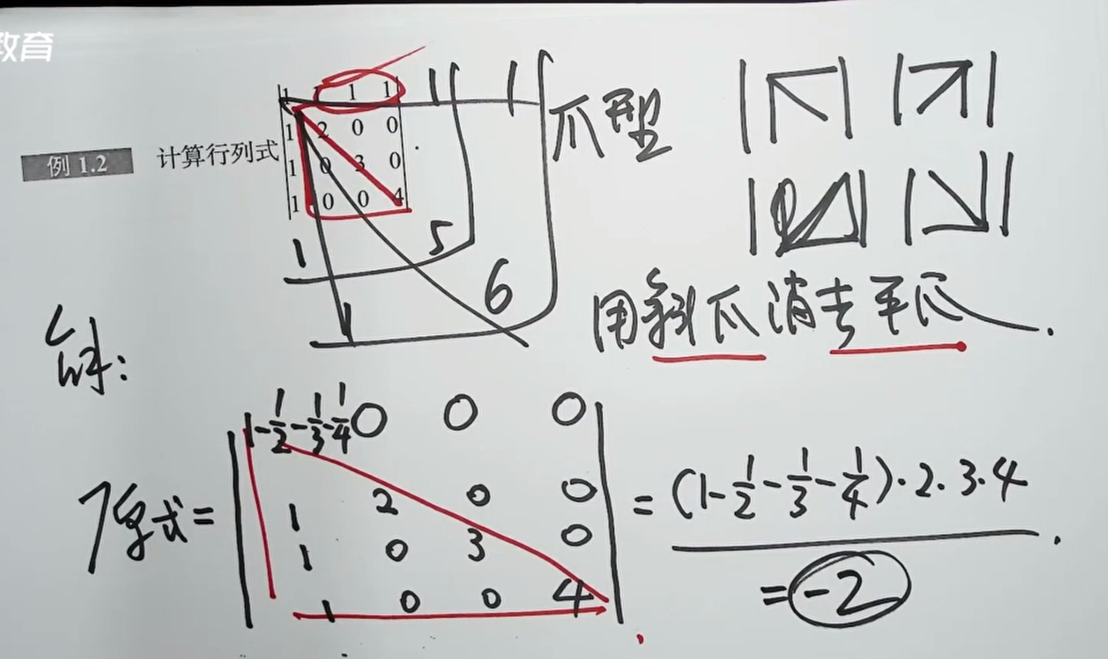 教育
例 1.2 计算行列式
1 1 1 1
1 2 0 0
1 0 3 0
1 0 0 4
.
1 1
1 5
1 6
爪型
用斜爪消去平爪.
解:
原式= 1-1/2-1/3-1/4 0 0 0
1 2 0 0
1 0 3 0
1 0 0 4
= (1-1/2-1/3-1/4)·2·3·4
= -2.